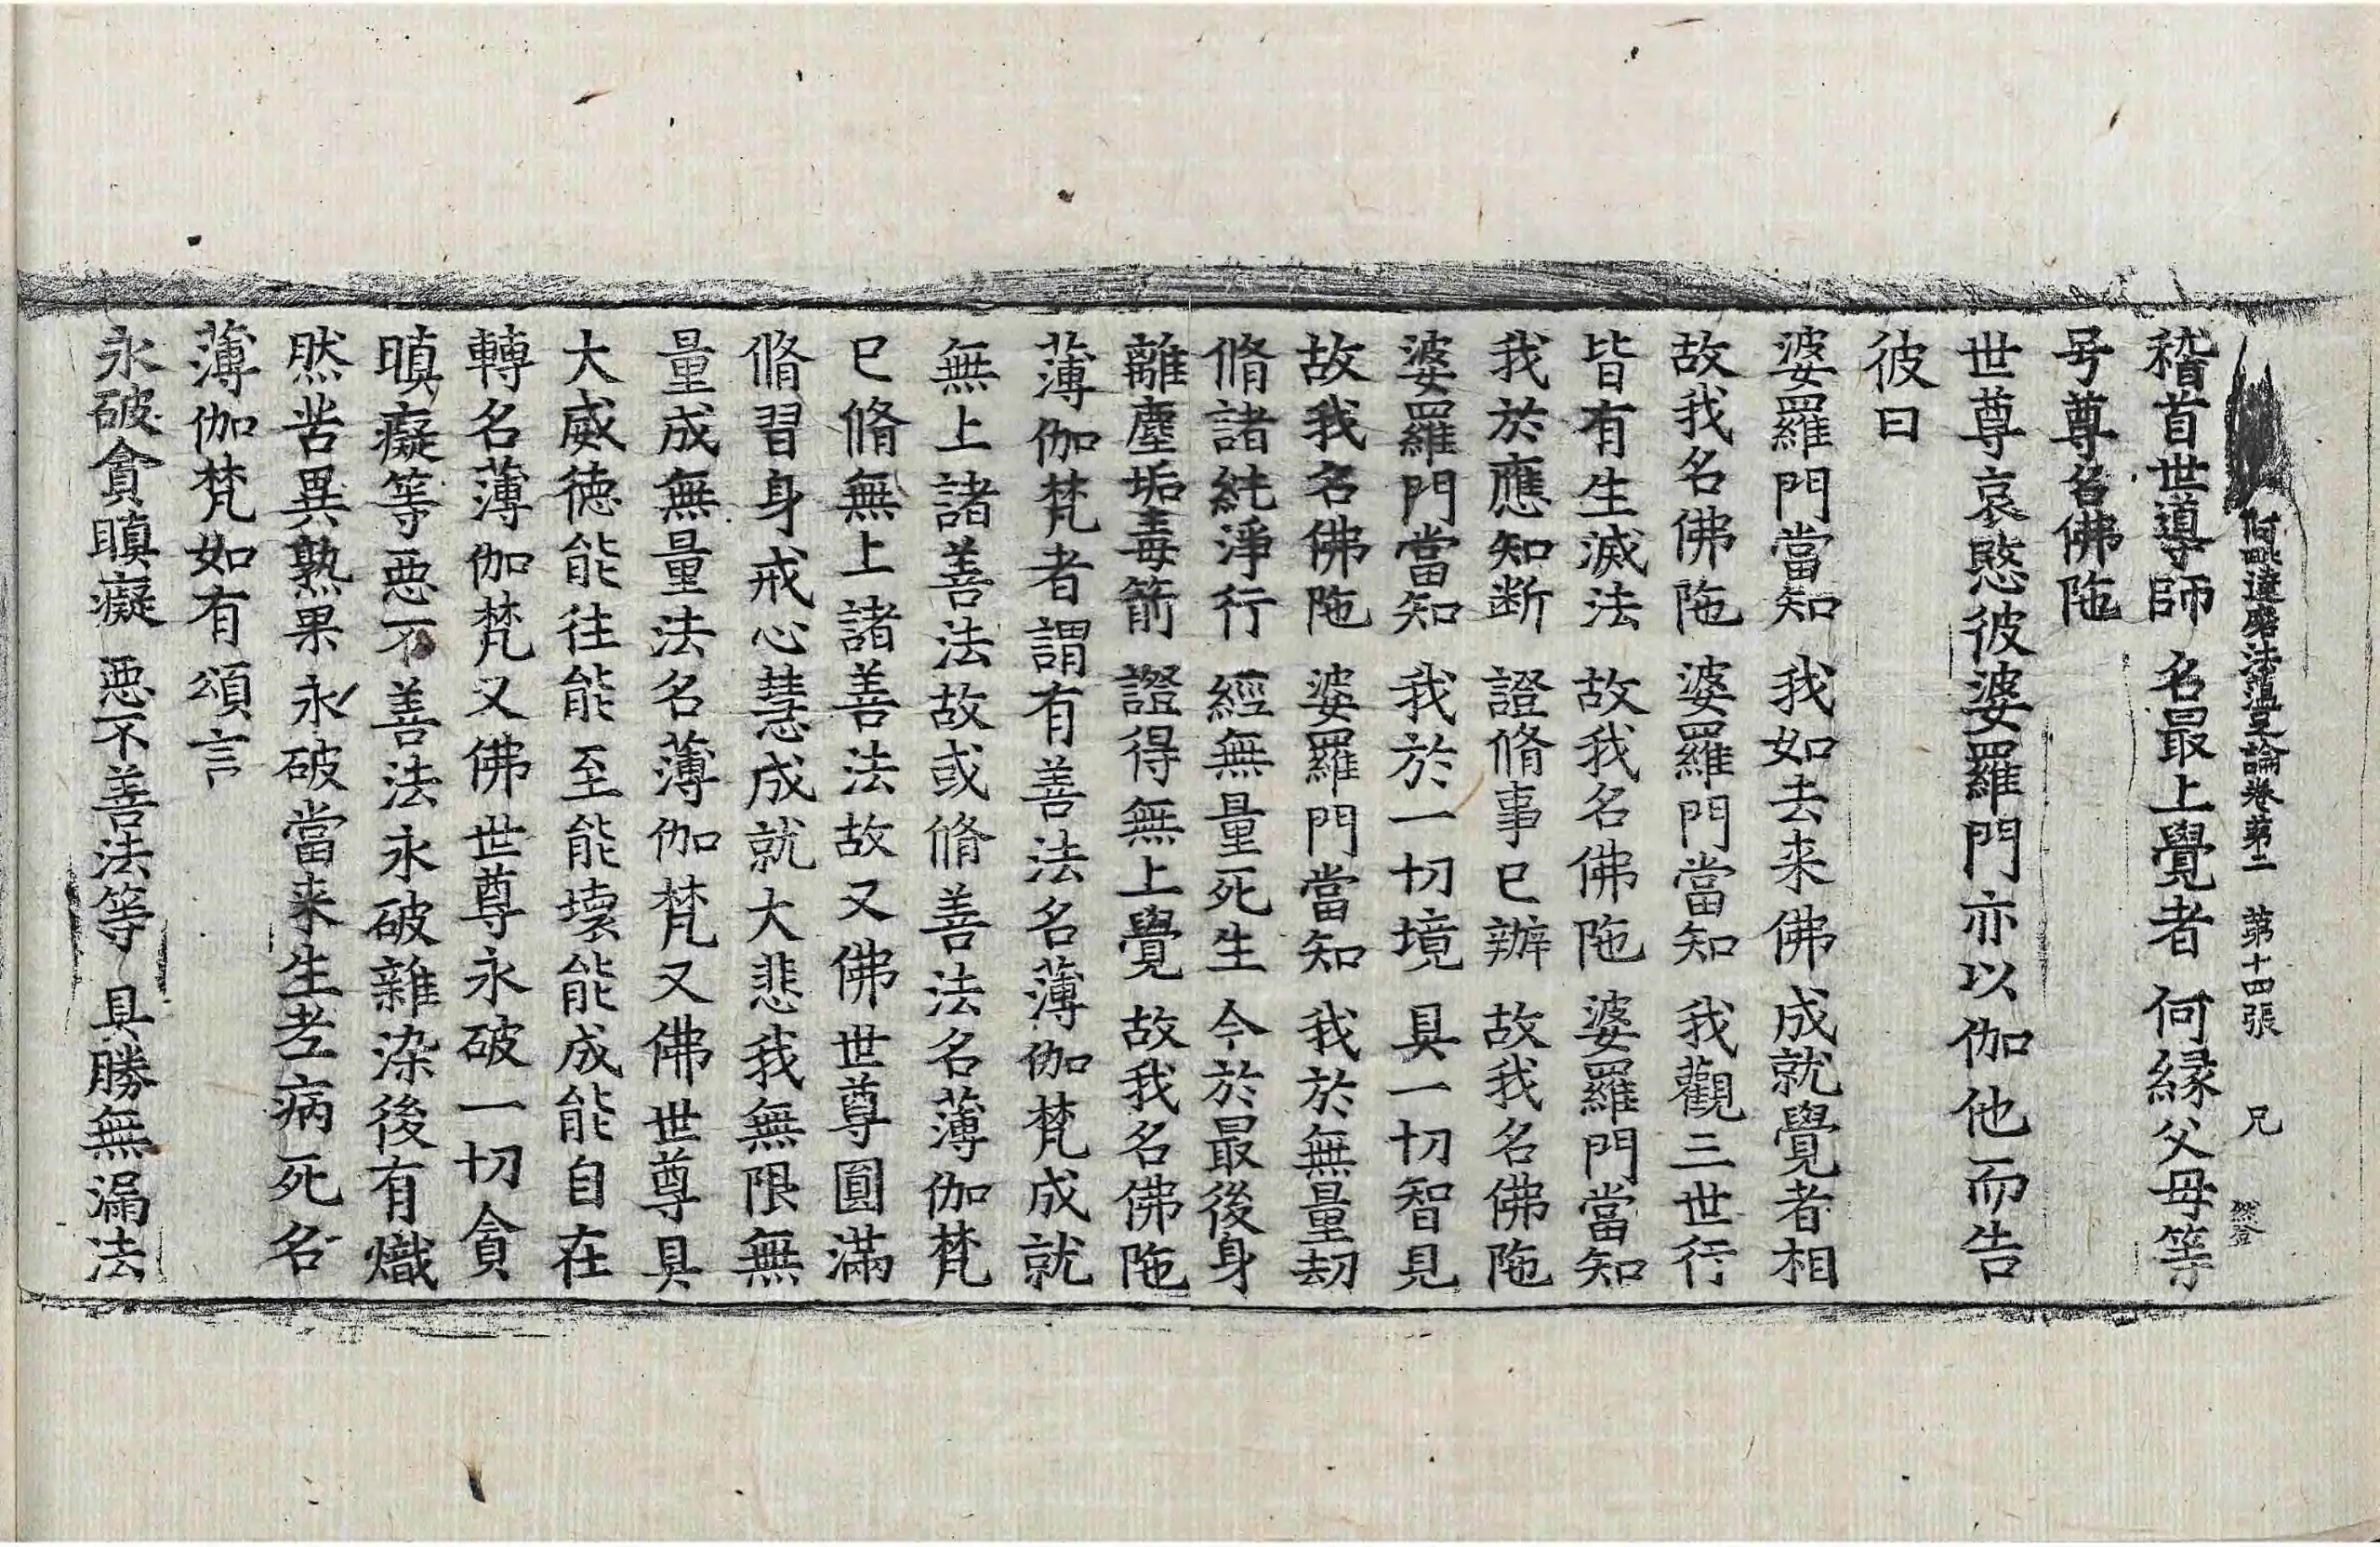 阿毗達磨法蘊足論卷第二 第十四張 兄
稽首世導師 名最上覺者 何緣父母等
号尊名佛陁
世尊哀愍彼婆羅門亦以伽他而告
彼曰
婆羅門當知 我如去来佛 成就覺者相
故我名佛陁 婆羅門當知 我觀三世行
皆有生滅法 故我名佛陁 婆羅門當知
我於應知断 證脩事已辦 故我名佛陁
婆羅門當知 我於一切境 具一切智見
故我名佛陁 婆羅門當知 我於無量劫
脩諸純淨行 經無量死生 今於最後身
離塵垢毒箭 證得無上覺 故我名佛陁
薄伽梵者謂有善法名薄伽梵成就
無上諸善法故或脩善法名薄伽梵
已脩無上諸善法故又佛世尊圓滿
脩習身戒心慧成就大悲我無限無
量成無量法名薄伽梵又佛世尊具
大威德能往能至能壞能成能自在
轉名薄伽梵又佛世尊永破一切貪
瞋癡等惡不善法永破雜染後有熾
然苦異熟果永破當来生老病死名
薄伽梵如有頌言
永破貪瞋癡 惡不善法等 具勝無漏法